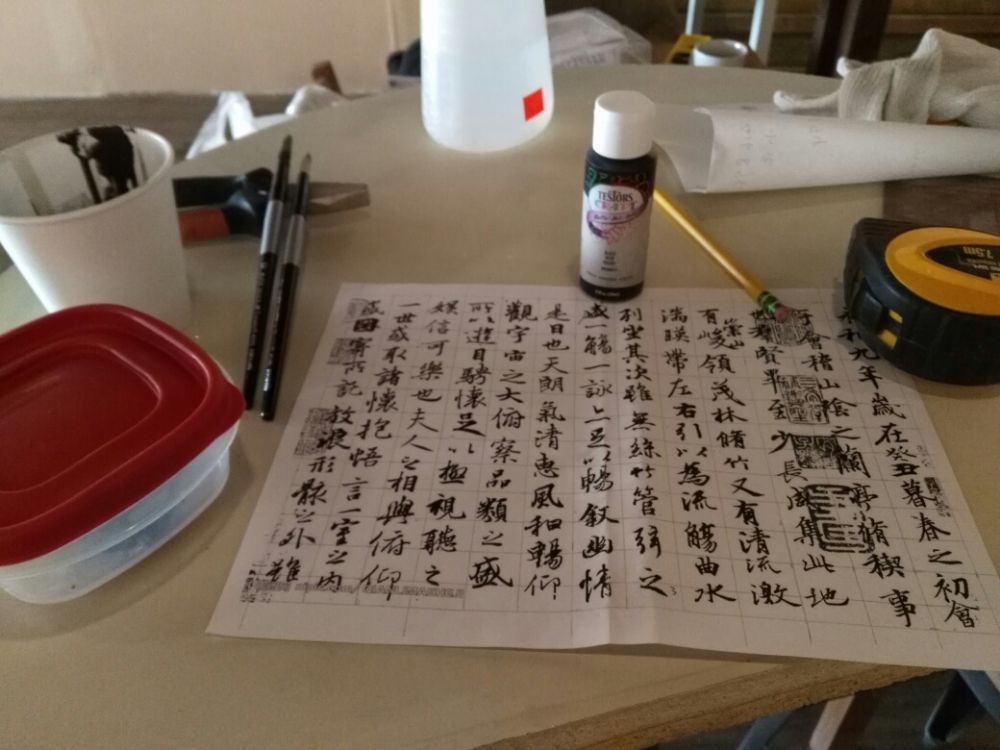 和九年歲在癸丑暮春之初會
于會稽山陰之蘭亭脩禊事
羣賢畢至少長咸集此地
有崇山峻領茂林脩竹又有清流激
湍暎帶左右引以為流觴曲水
列坐其次雖無絲竹管弦之
盛一觴一詠亦足以暢敘幽情
是日也天朗氣清惠風和暢仰
觀宇宙之大俯察品類之盛
所以遊目騁懷足以極視聽之
娛信可樂也夫人之相與俯仰
一世或取諸懷抱悟言一室之內
或因寄所託放浪形骸之外雖
TESTORS
CRAFT
7.5m